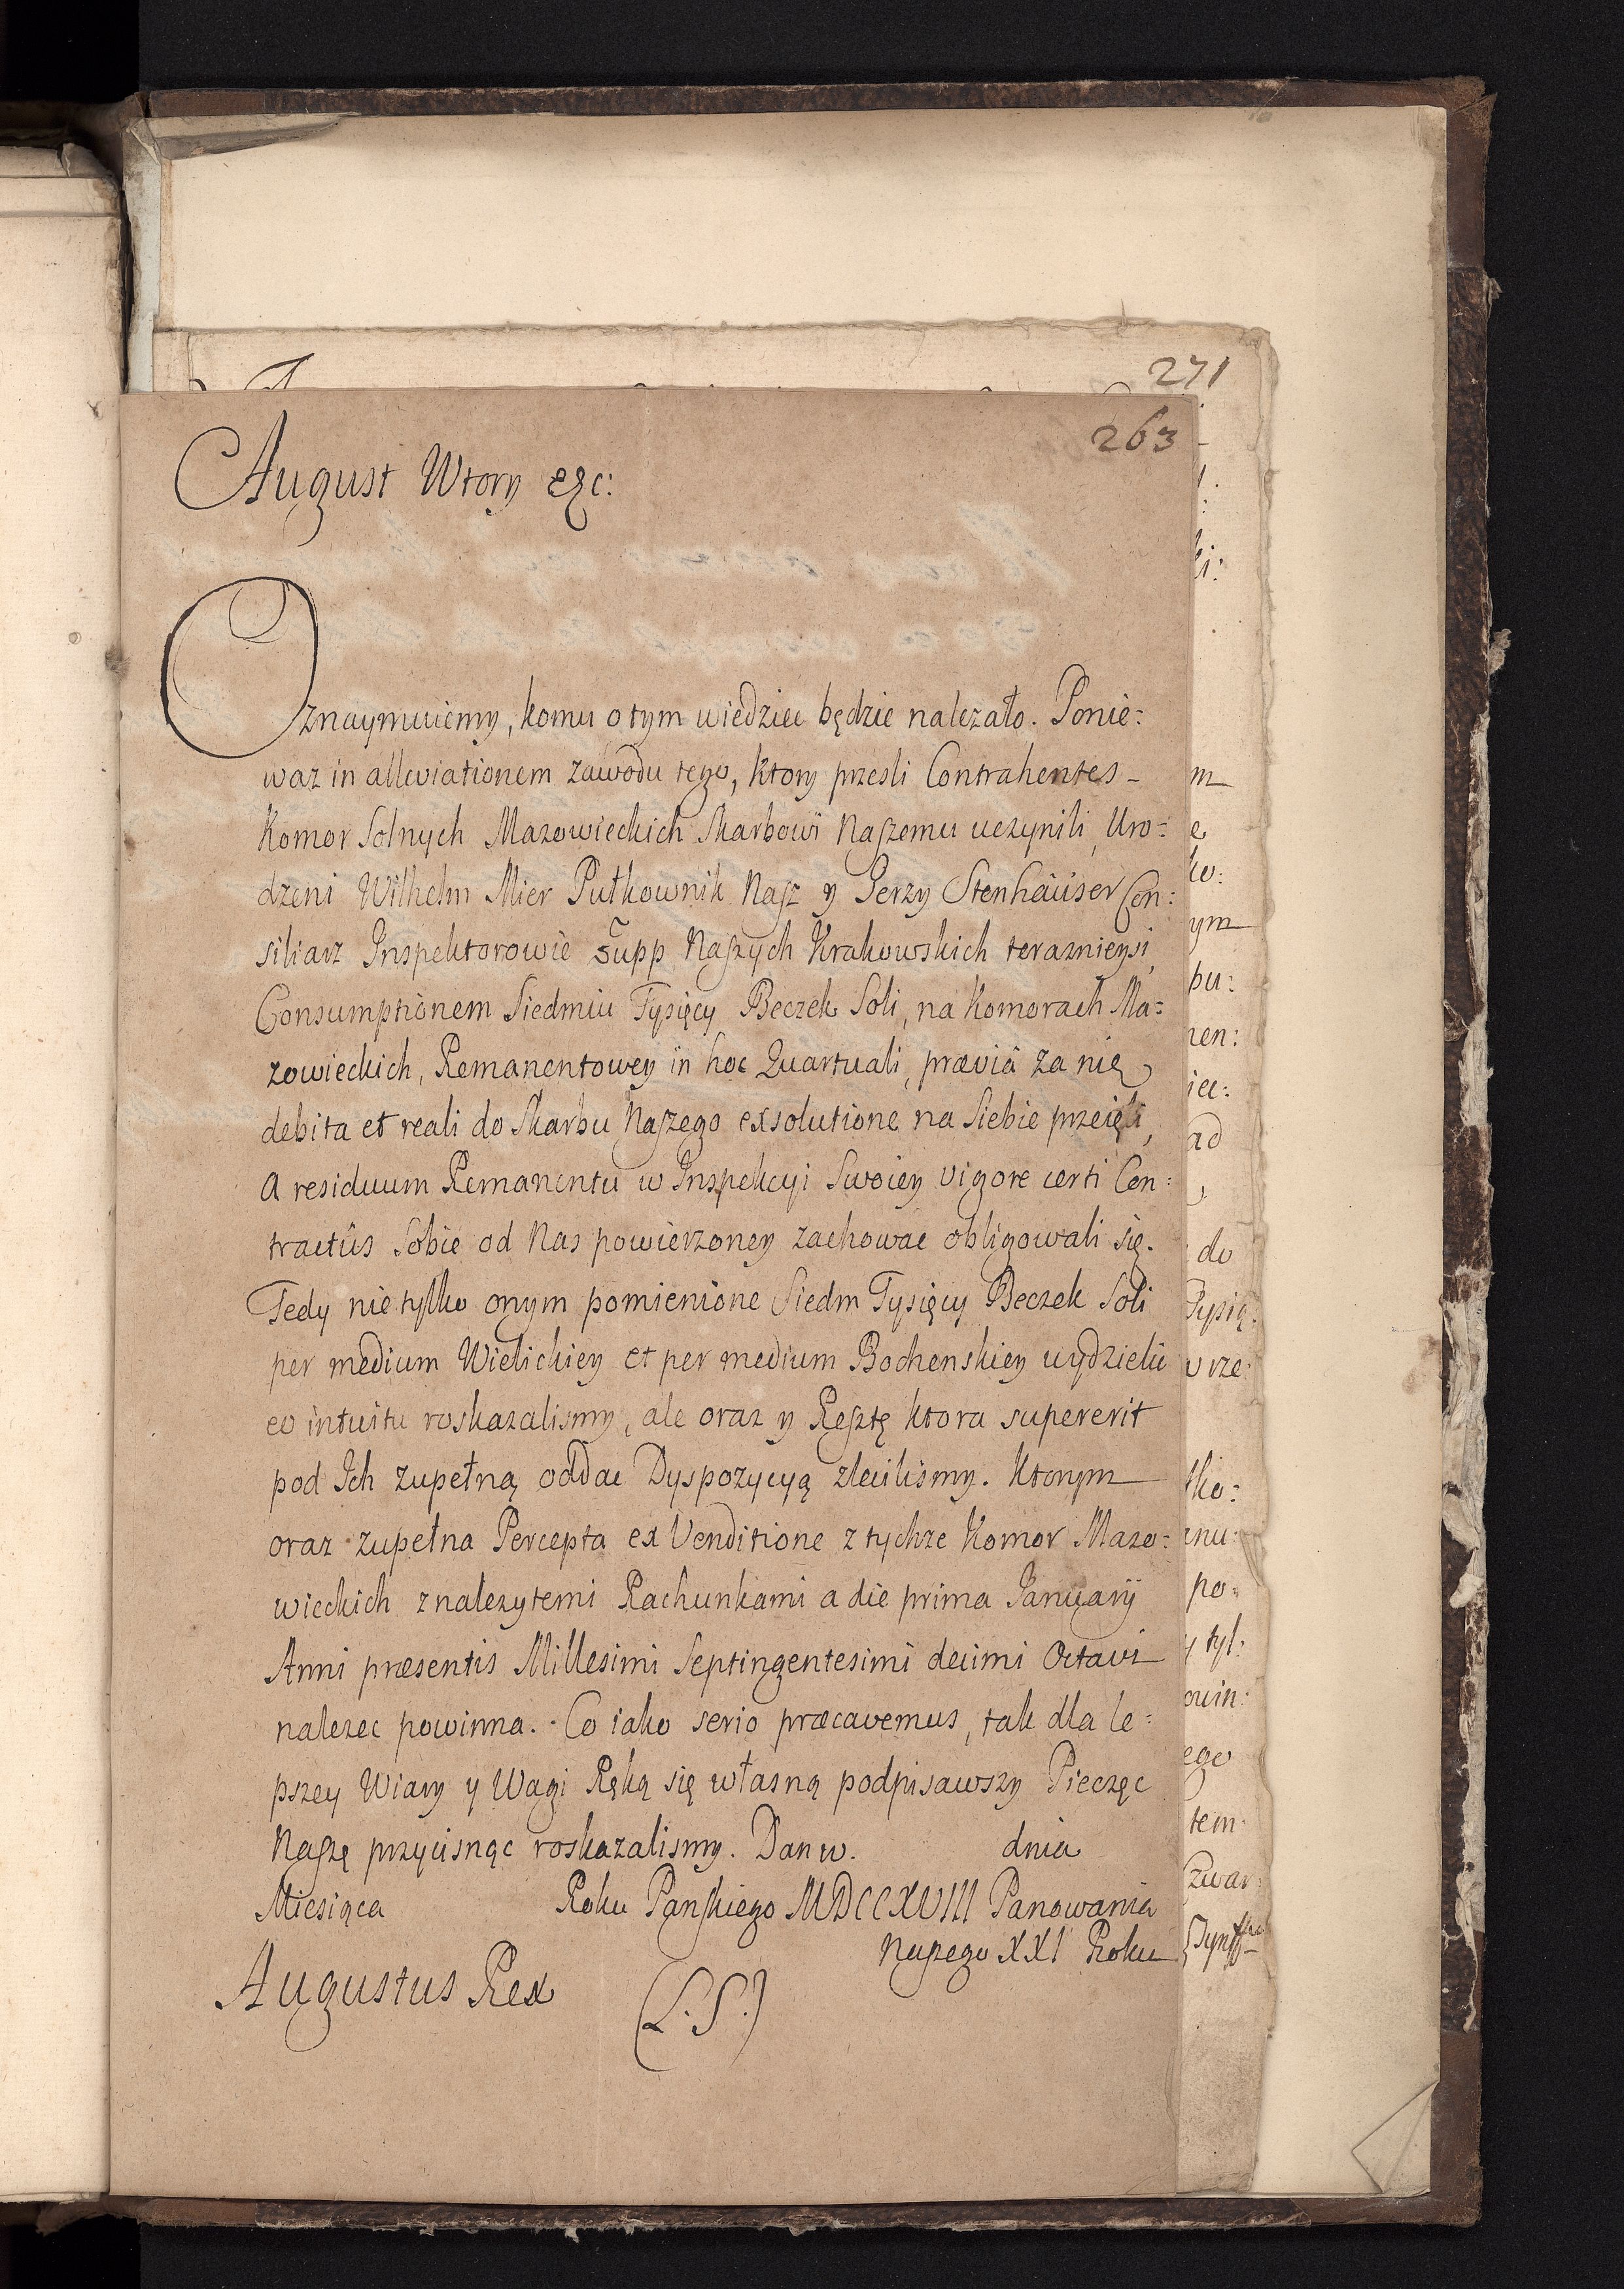 271
263
August Wtory etc:
Oznaymuiemy, komu o tym wiedziec będzie nalezało. Ponie:
waz in alleviationem zawodu tego, ktory przesli Contrahentes
Komor Solnych Mazowieckich Skarbowi Naszemu uczynili, Uro:
dzeni Wilhelm Mier Pułkownik Nasz y Jerzy Stenhäuser Con:
siliarz Inspektorowie Supp Naszych Krakowskich teraznieysi,
Consumptionem Siedmiu Tysięcy Beczek Soli, na Komorach Ma:
zowieckich, Remanentowey in hoc Quartuali, praeviâ za nię
debita et reali do Skarbu Naszego exsolutione na Siebie przeięli,
A residuum Remanentu w Inspekcyi Swoiey vigore certi Con:
tractûs Sobie od Nas powierzoney zachowac obligowali się.
Tedy nie tylko onym pomienione Siedm Tysięcy Beczek Soli
per medium Wielickiey et per medium Bochenskiey wydzielic
eo intuitu roskazalismy, ale oraz y Resztę ktora supererit
pod Ich zupełną oddac Dyspozycyą zlecilismy. Ktorym
oraz zupełna Percepta ex Venditione z tychze Komor Mazo:
wieckich z nalezytemi Rachunkami a die prima Januarij
Anni praesentis Millesimi Septingentesimi decimi Octavi
nalezec powinna. Co iako serio praecavemus, tak dla le:
pszey Wiary y Wagi Ręką się własną podpisawszy Pieczęc
Naszę przycisnąc roskazalismy. Dan w. dnia
Miesiąca Roku Panskiego MDCCXVIII Panowania
Naszego XXI Roku
Augustus Rex (L.S.)
m
e
ko:
ym
pu:
nen:
iec:
ad
do
Tysię:
w rze:
tko:
znu:
po:
y tyl:
owin:
ego
tem:
Czwar: